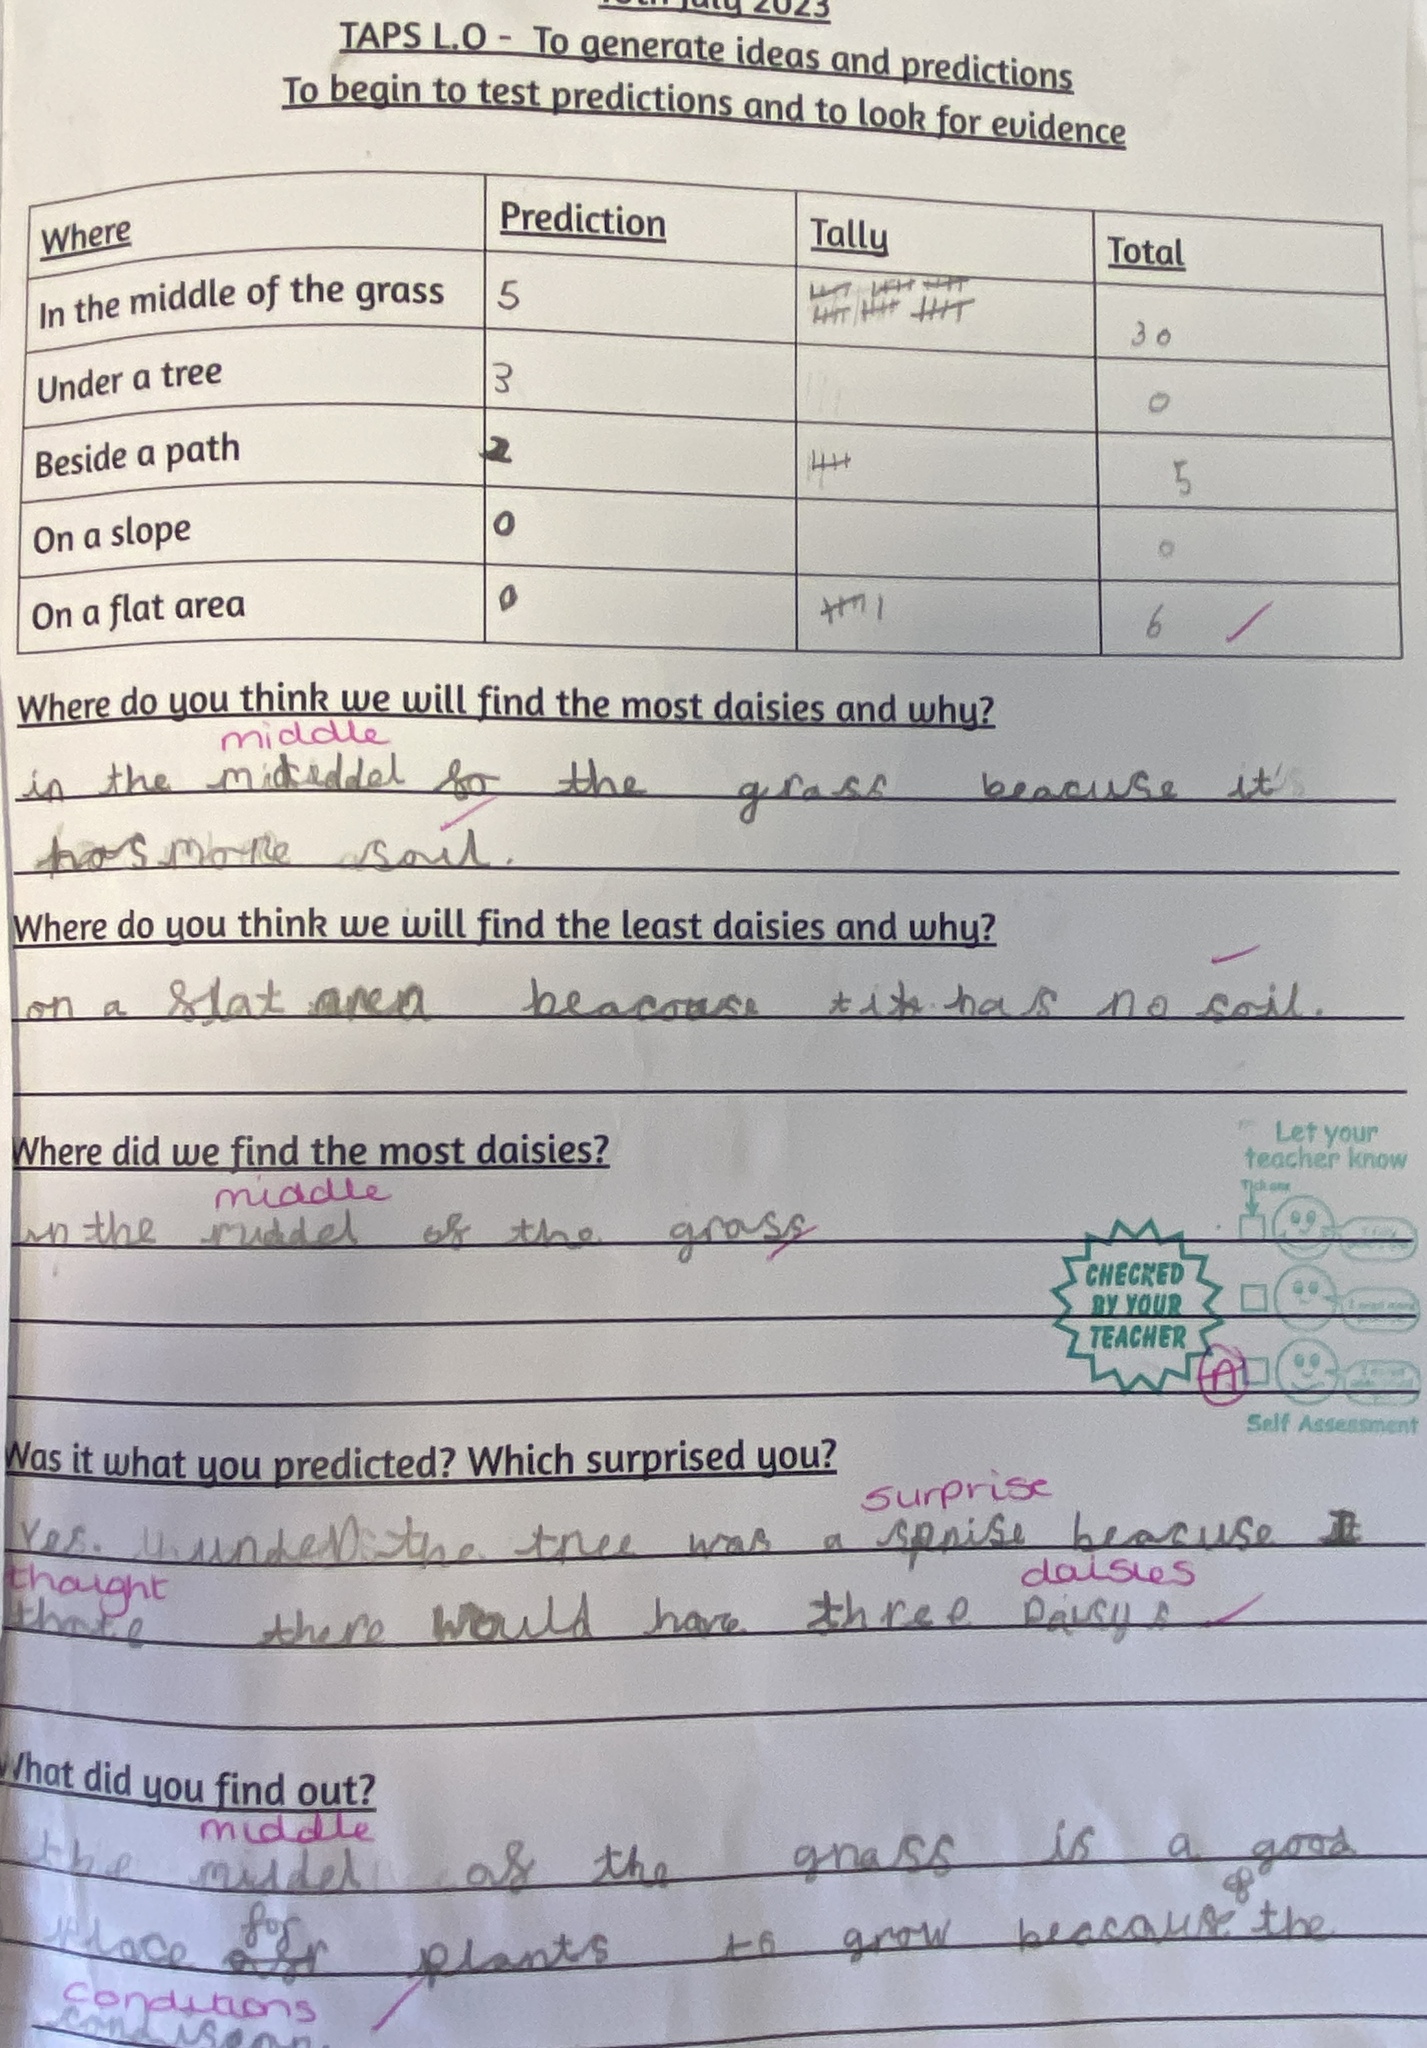 July 2023
TAPS L.O - To generate ideas and predictions
To begin to test predictions and to look for evidence
Where Prediction Tally Total
In the middle of the grass 5 30
Under a tree 3 0
Beside a path 2 5
On a slope 0 0
On a flat area 0 6
Where do you think we will find the most daisies and why?
middle
in the of the grass beacuse it's
has more soil.
Where do you think we will find the least daisies and why?
on a flat area beacouse it has no soil.
Where did we find the most daisies?
middle
in the middel of the grass
Let your
teacher know
Tick one
CHECKED
BY YOUR
TEACHER
A
Self Assessment
Was it what you predicted? Which surprised you?
surprise
Yes. under the tree was a sprise beacuse I
thought daisies
there would have three Daisys
What did you find out?
middle
the middel of the grass is a good
place for plants to grow beacause of the
conditions